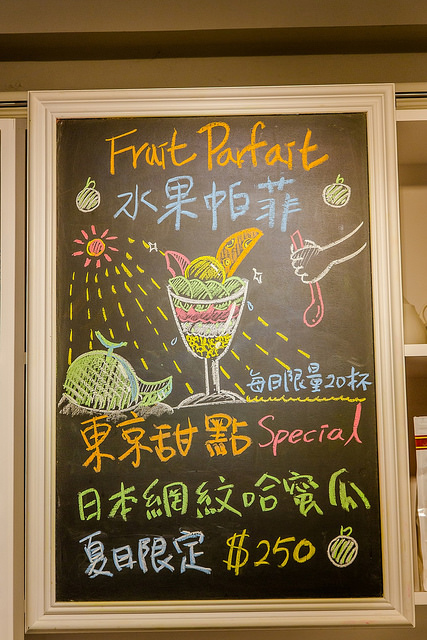 Fruit Parfait
水果帕菲
每日限量20杯
東京甜點 Special
日本網紋哈蜜瓜
夏日限定 $250